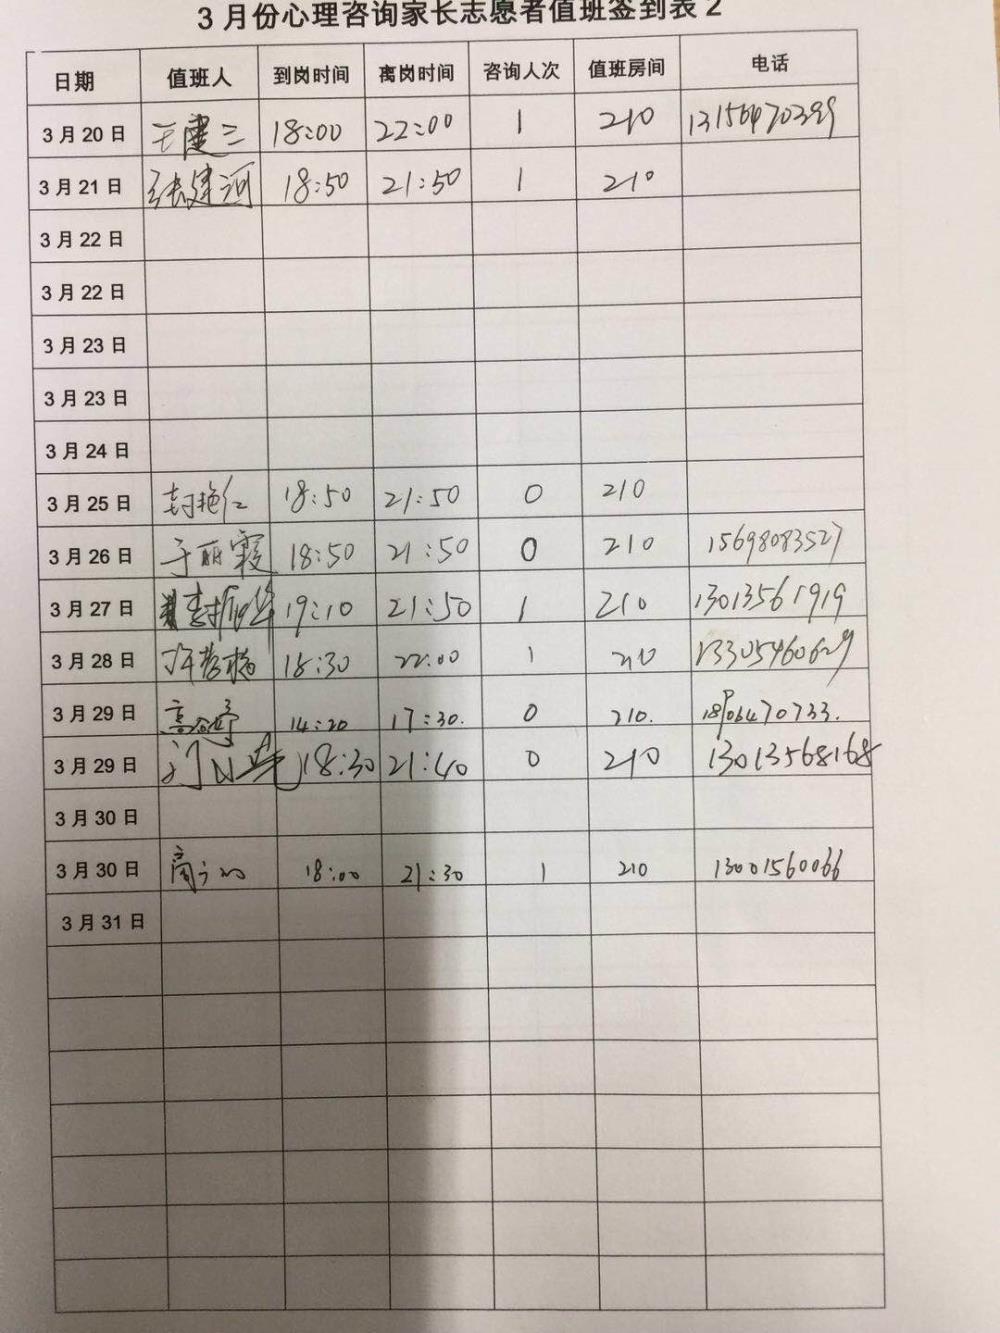 3月份心理咨询家长志愿者值班签到表2
日期 值班人 到岗时间 离岗时间 咨询人次 值班房间 电话
3月20日 王建三 18:00 22:00 1 210
3月21日 张建河 18:50 21:50 1 210
3月22日
3月22日
3月23日
3月23日
3月24日
3月25日 封艳仁 18:50 21:50 0 210
3月26日 于丽霞 18:50 21:50 0 210 15698083527
3月27日 李振华 19:10 21:50 1 210 13013561919
3月28日 18:30 22:00 1 210 13305460629
3月29日 14:20 17:30. 0 210. 18906470733.
3月29日 18:30 21:40 0 210 13013568168
3月30日
3月30日 18:00 21:30 1 210 13001560066
3月31日